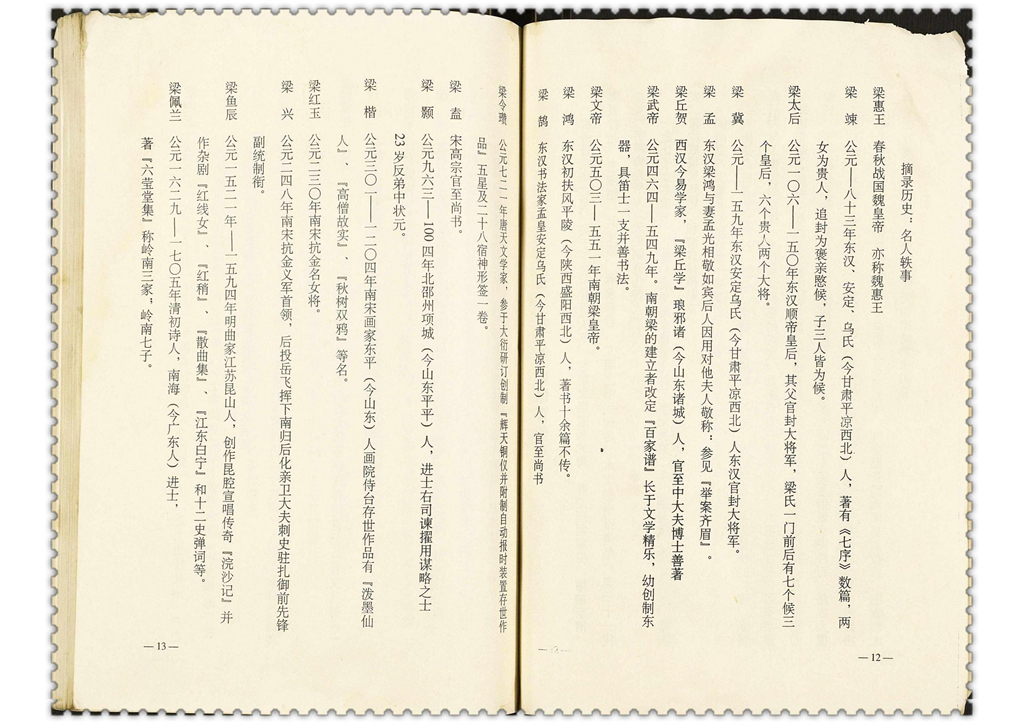 摘录历史：名人轶事
梁惠王 春秋战国魏皇帝 亦称魏惠王
梁 竦 公元——八十三年东汉、安定、乌氏（今甘肃平凉西北）人，著有《七序》数篇，两
女为贵人，追封为褒亲愍候，子三人皆为候。
梁太后 公元一〇六——一五〇年东汉顺帝皇后，其父官封大将军，梁氏一门前后有七个候三
个皇后，六个贵人两个大将。
梁 冀 公元——一五九年东汉安定乌氏（今甘肃平凉西北）人东汉官封大将军。
梁 孟 东汉梁鸿与妻孟光相敬如宾后人因用对他夫人敬称：参见『举案齐眉』。
梁丘贺 西汉今易学家，『梁丘学』琅邪诸（今山东诸城）人，官至中大夫博士善著
梁武帝 公元四六四——五四九年。南朝梁的建立者改定『百家谱』长于文学精乐，幼创制东
器，具笛士一支并善书法。
梁文帝 公元五〇三——五五一年南朝梁皇帝。
梁 鸿 东汉初扶风平陵（今陕西盛阳西北）人，著书十余篇不传。
梁 鹄 东汉书法家孟皇安定乌氏（今甘肃平凉西北）人，官至尚书
—12—
梁令瓒 公元七二一年唐天文学家，参于大衍研订创制『辉天铜仪并附制自动报时装置存世作
品』五星及二十八宿神形签一卷。
梁 盍 宋高宗官至尚书。
梁 颢 公元九六三——100四年北邵州项城（今山东平平）人，进士右司谏擢用谋略之士
23岁反弟中状元。
梁 楷 公元三〇一——一二〇四年南宋画家东平（今山东）人画院侍台存世作品有『泼墨仙
人』、『高僧故实』、『秋树双鸦』等名。
梁红玉 公元一二三〇年南宋抗金名女将。
梁 兴 公元二四八年南宋抗金义军首领，后投岳飞挥下南归后化亲卫大夫刺史驻扎御前先锋
副统制衔。
梁鱼辰 公元一五二一年——一五九四年明曲家江苏昆山人，创作昆腔宣唱传奇『浣沙记』并
作杂剧『红线女』、『红稍』、『散曲集』、『江东白宁』和十二史弹词等。
梁佩兰 公元一六二九——一七〇五年清初诗人，南海（今广东人）进士，
著『六莹堂集』称岭南三家；岭南七子。
—13—